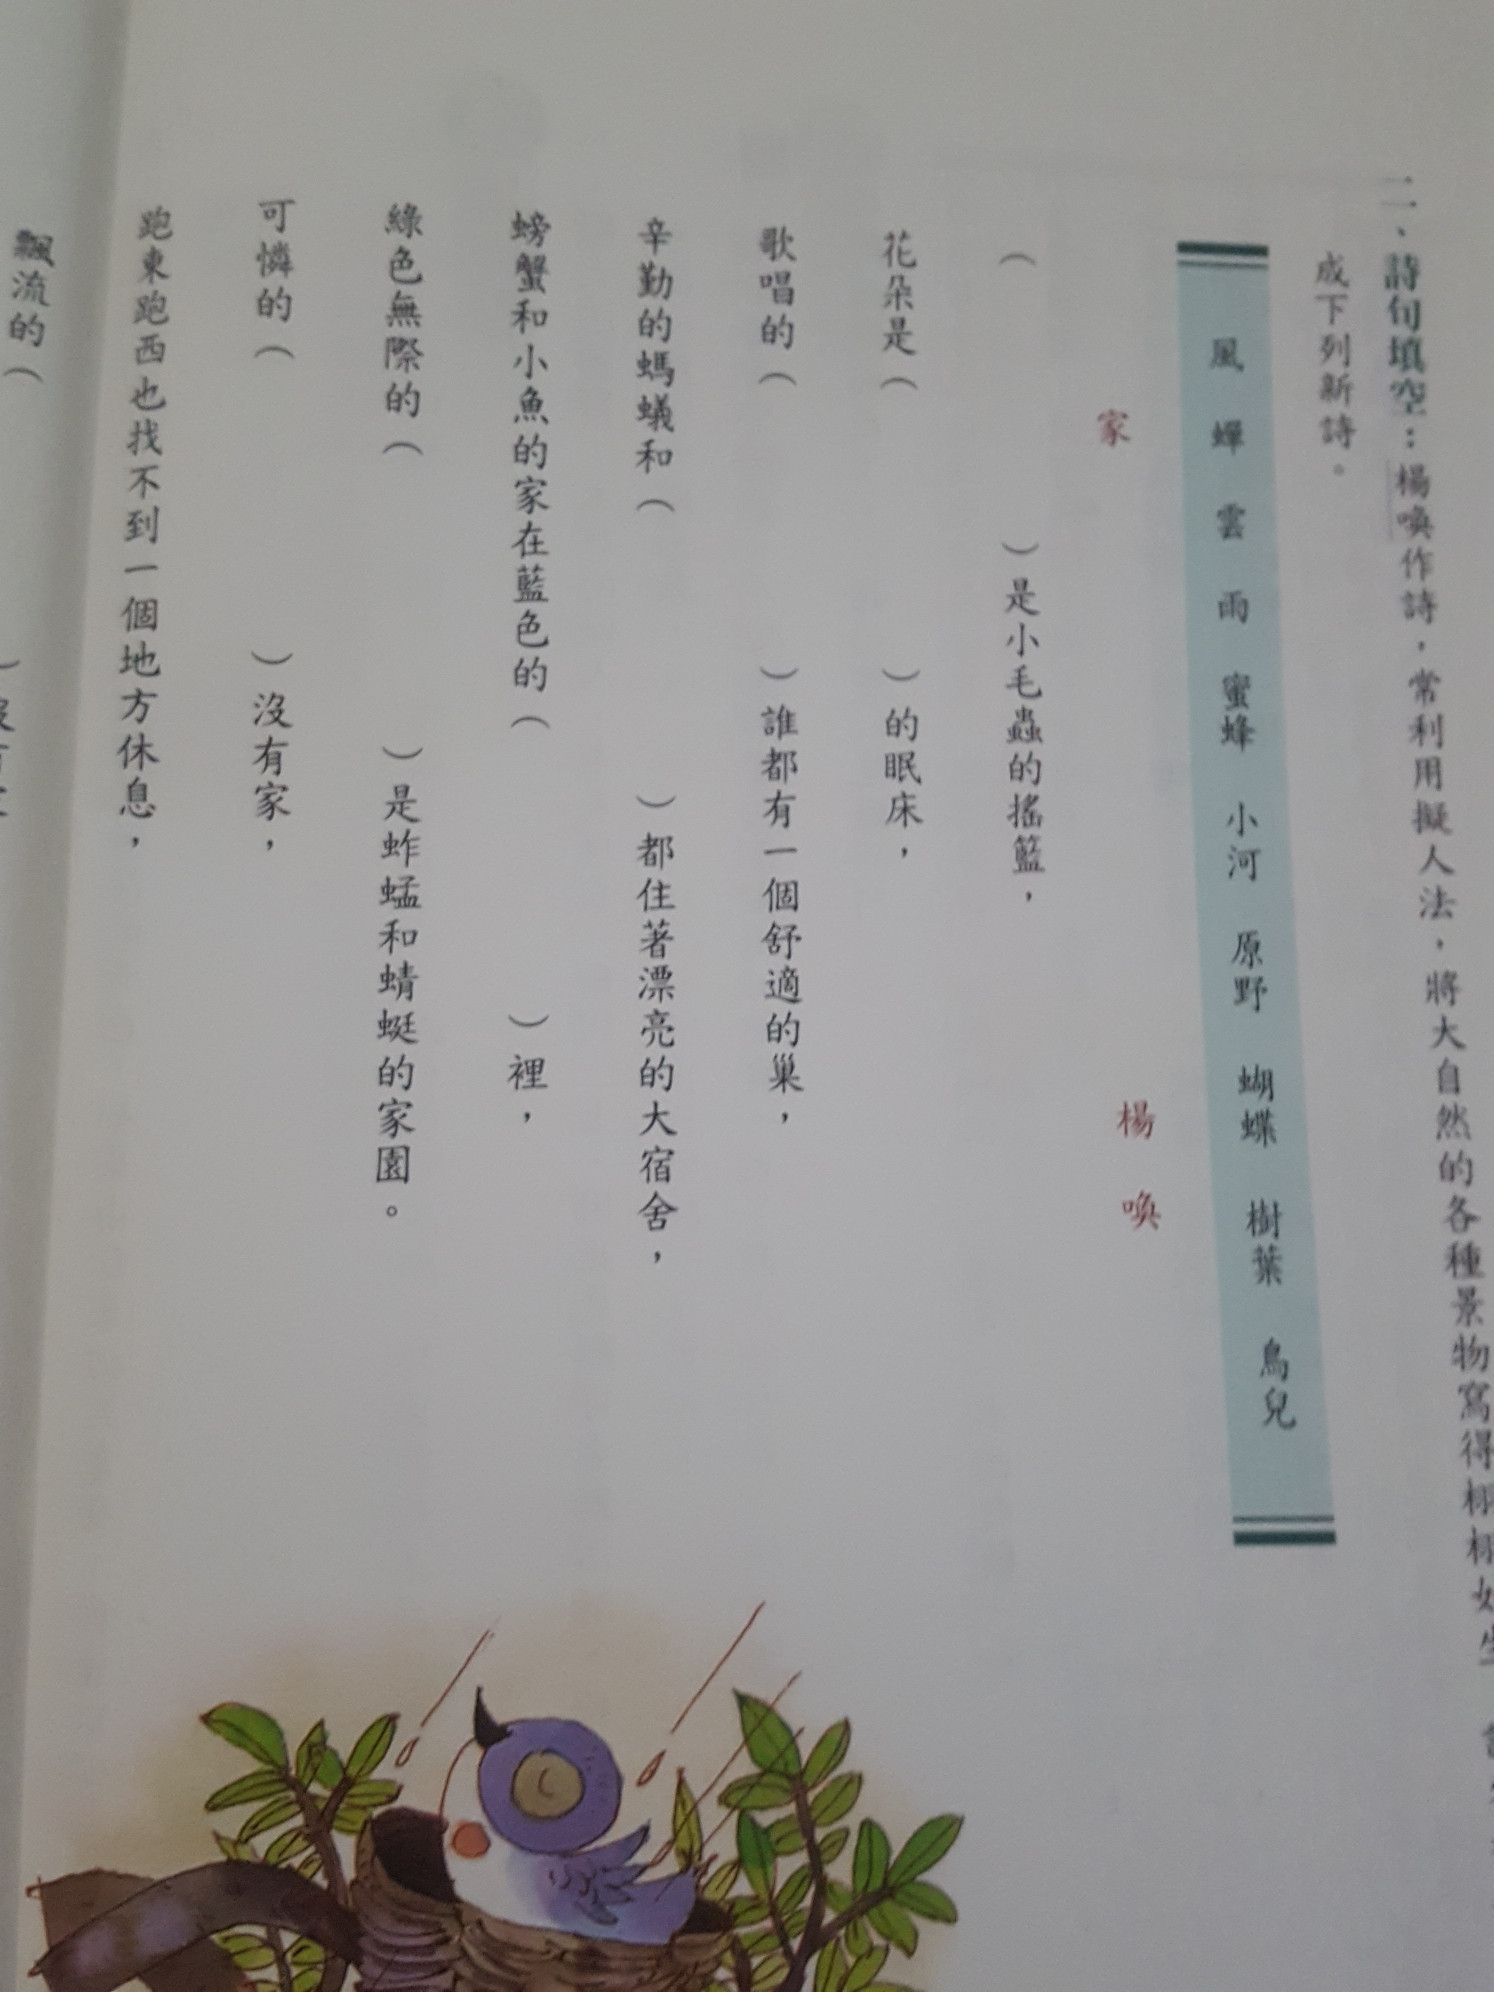 二、詩句填空：楊喚作詩，常利用擬人法，將大自然的各種景物寫得栩栩如生
成下列新詩。
風　蟬　雲　雨　蜜蜂　小河　原野　蝴蝶　樹葉　鳥兒
家　楊喚
（　）是小毛蟲的搖籃，
花朵是（　）的眠床，
歌唱的（　）誰都有一個舒適的巢，
辛勤的螞蟻和（　）都住著漂亮的大宿舍，
螃蟹和小魚的家在藍色的（　）裡，
綠色無際的（　）是蚱蜢和蜻蜓的家園。
可憐的（　）沒有家，
跑東跑西也找不到一個地方休息，
飄流的（　）